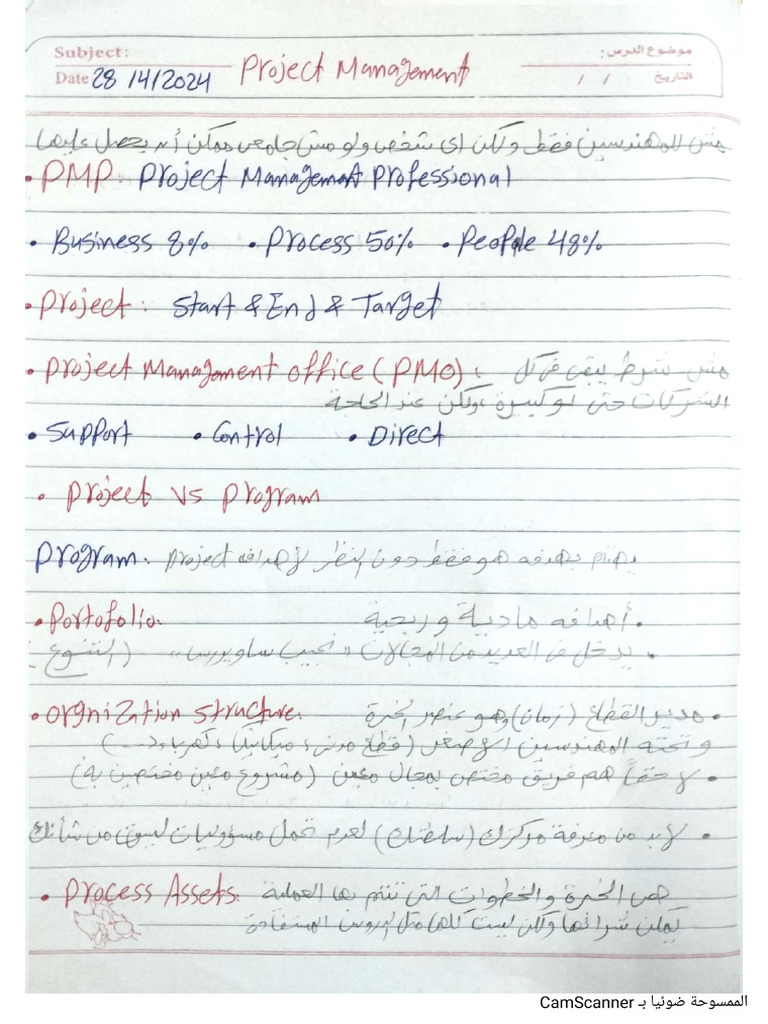 Subject: موضوع الدرس:
Date 28/4/2024 Project Management / / التاريخ
مش للمهندسين فقط ولكن اى شخص ولو مش جامعى ممكن أنه يحصل عليها
• PMP: Project Management Professional
• Business 8% • Process 50% • People 48%
• Project: Start & End & Target
• Project Management office (PMO): مش شرط يبقى فى كل
الشركات حتى لو كبيرة ولكن عند الحاجة
• Support • Control • Direct
• Project vs Program
Program: يهتم بهدفه هو فقط دون النظر لأهداف Project
• Portofolio: • أهدافه مادية و ربحية
• يدخل فى العديد من المجالات " نجيب ساويرس " (التنوع)
• Orgnization structure: • مدير القطاع (زمان) وهو عنصر خبرة
و تحته المهندسين الأصغر (قطاع مدنى، ميكانيكا، كهرباء، ...)
• لاحقاً هم فريق مختص بمجال معين (مشروع معين مختصين به)
• لابد من معرفة مركزك (سلطتك) لعدم تحمل مسؤوليات ليست من شأنك
• Process Assets: هى الخبرة والخطوات التى تتم بها العملية
يمكن شرائها ولكن ليست كلها مثل الدروس المستفادة
الممسوحة ضوئيا بـ CamScanner